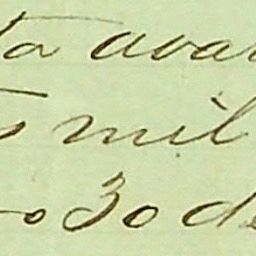 ta avan
s mil
o 30 de